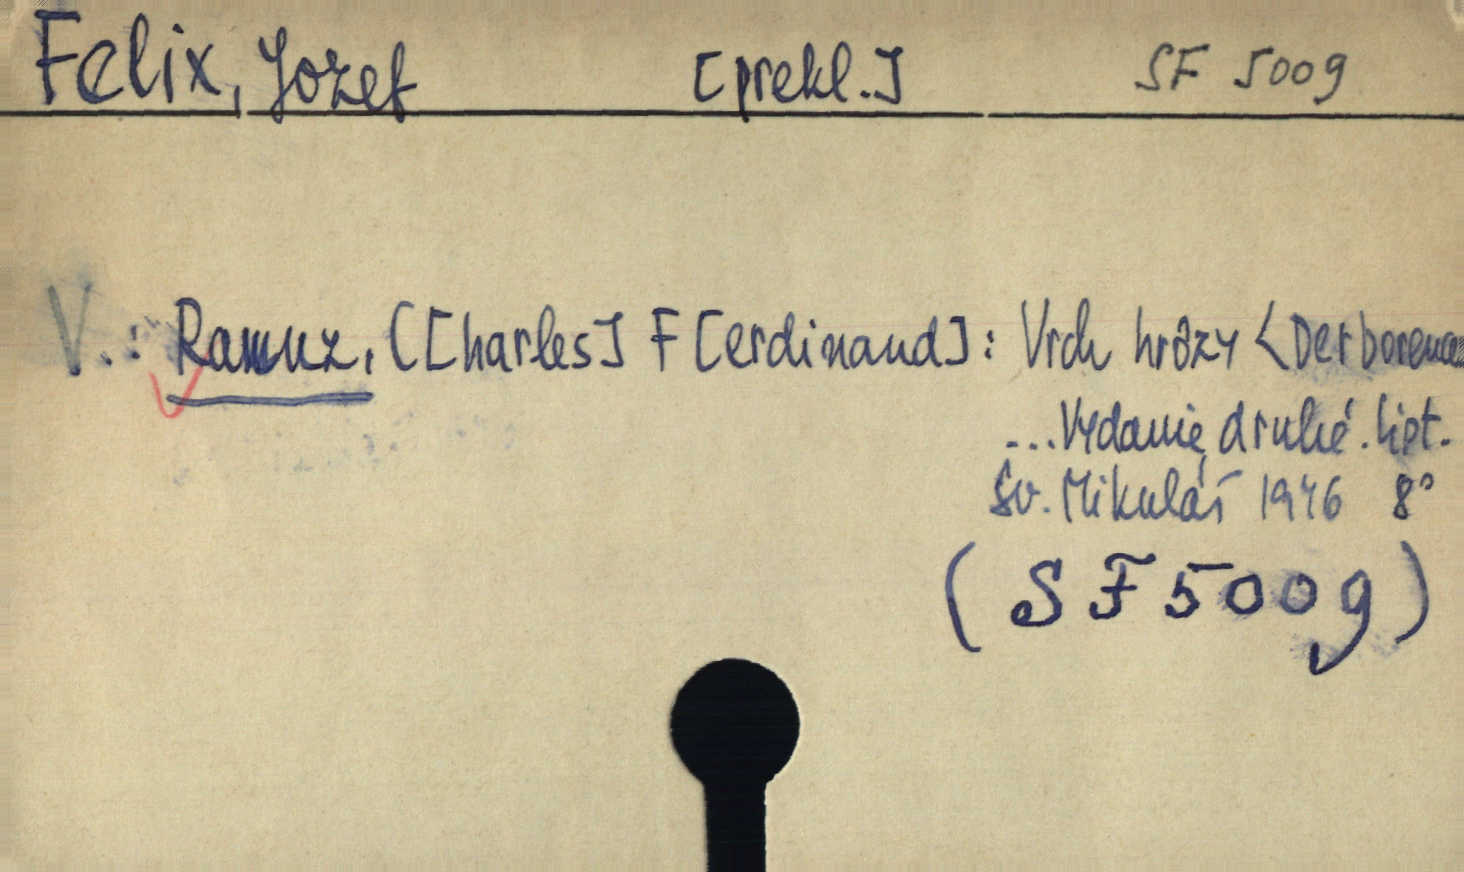 Felix, Jozef [prekl.] SF 5009
V.: Ramuz, C[harles] F[erdinand]: Vrch hrôzy <Derborence
...Vydanie druhé. Lipt.
Sv. Mikuláš 1946 8°
(SF5009)